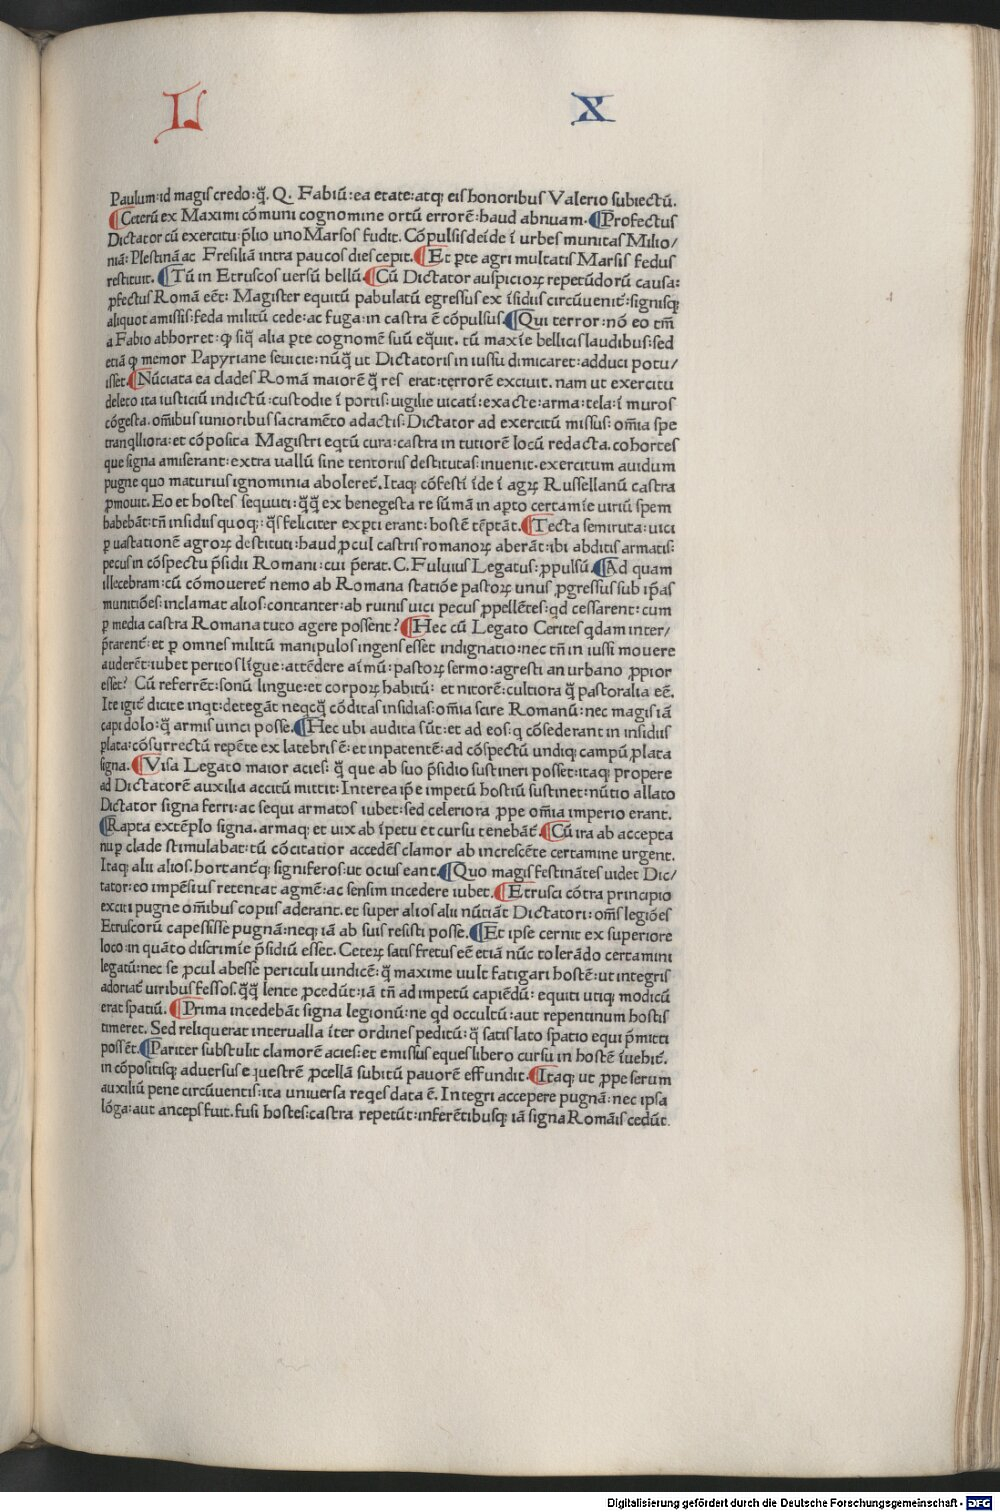 L X
Paulum:id magis credo:q̃. Q. Fabiũ:ea etate:atq; eis honoribus Valerio subiectũ.
¶Ceterũ ex Maximi cõmuni cognomine ortũ errorẽ:haud abnuam.¶Profectus
Dictator cũ exercitu:p̃lio uno Marsos fudit. Cõpulsis deĩde ĩ urbes munitas Milio/
niã:Plestinã ac Fresiliã intra paucos dies cepit.¶Et ꝑte agri multatis Marsis fedus
restituit.¶Tũ in Etruscos versũ bellũ.¶Cũ Dictator auspicioꝝ repetũdorũ causa:
ꝓfectus Romã eẽt: Magister equitũ pabulatũ egressus ex ĩsidiis circũuenit̃:signisq;
aliquot amissis:feda militũ cede:ac fuga:in castra ẽ cõpulsus.¶Qui terror:nõ eo tm̃
a Fabio abhorret:ꝙ siq̃ alia ꝑte cognomẽ suũ eq̃uit. tũ maxĩe bellicis laudibus:sed
etiã ꝙ memor Papyriane seuicie:nũq̃ ut Dictatoris in iussu dimicaret:adduci potu/
isset.¶Nũciata ea clades Romã maiorẽ q̃ res erat:terrorẽ exciuit. nam ut exercitu
deleto ita iusticiũ indictũ:custodie ĩ portis:uigilie uicatĩ:exacte:arma:tela:ĩ muros
cõgesta. om̃ibus iunioribus sacramẽto adactis:Dictator ad exercitũ missus:om̃ia spe
tranq̃lliora:et cõposita Magistri eq̃tũ cura:castra in tutiorẽ locũ redacta. cohortes
que signa amiserant:extra uallũ sine tentoriis destitutas:inuenit. exercitum auidum
pugne quo maturius ignominia aboleret̃. Itaq; cõfestĩ ĩde ĩ agꝝ Russellanũ castra
ꝓmouit. Eo et hostes sequuti: q̃q̃ ex benegesta re sũmã in aꝑto certamĩe uiriũ spem
habebãt:tñ insidiis quoq;: q̃s feliciter exꝑti erant:hostẽ tẽptãt.¶Tecta semiruta:uici
ꝑ uastationẽ agroꝝ destituti:haud ꝓcul castris romanoꝝ aberãt:ibi abditis armatis:
pecus in cõspectu p̃sidii Romani:cui p̃erat. C. Fuluius Legatus:ꝓpulsũ.¶Ad quam
illecebram:cũ cõmoueret̃ nemo ab Romana statiõe pastoꝝ unus ꝓgressus sub ip̃as
munitiões:inclamat alios:contanter:ab ruinis uici pecus ꝓpellẽtes:qd cessarent:cum
ꝑ media castra Romana tuto agere possent?¶Hec cũ Legato Cerites qdam inter/
p̃tarent̃:et ꝑ omnes militũ manipulos ingens esset indignatio:nec tñ in iussi mouere
auderẽt:iubet peritos lĩgue:attẽdere aĩmũ:pastoꝝ sermo:agresti an urbano ꝓpior
esset? Cũ referrẽt:sonũ lingue:et corpoꝝ habitũ: et nitorẽ:cultiora q̃ pastoralia eẽ.
Ite igit̃ dicite inqt:detegãt neqcq̃ cõditas insidias:om̃ia scire Romanũ:nec magis iã
capi dolo:q̃ armis uinci posse.¶Hec ubi audita sũt:et ad eos:q cõsederant in insidiis
ꝑlata:cõsurrectũ repẽte ex latebris ẽ:et inpatentẽ:ad cõspectũ undiq; campũ ꝓlata
signa.¶Visa Legato maior acies: q̃ que ab suo p̃sidio sustineri posset:itaq; propere
ad Dictatorẽ auxilia accitũ mittit:Interea ip̃e impetũ hostiũ sustinet:nũtio allato
Dictator signa ferri:ac sequi armatos iubet:sed celeriora ꝓpe om̃ia imperio erant.
¶Rapta extẽplo signa.armaq; et uix ab ĩpetu et cursu tenebãt̃.¶Cũ ira ab accepta
nuꝑ clade stimulabat:tũ cõcitatior accedẽs clamor ab increscẽte certamine urgent.
Itaq; alii alios.hortant̃q; signiferos:ut ocius eant.¶Quo magis festinãtes uidet Dic/
tator:eo impẽsius retentat agmẽ:ac sensim incedere iubet.¶Etrusci cõtra principio
exciti pugne om̃ibus copiis aderant. et super alios alii nũtiãt Dictatori:om̃s legiões
Etruscorũ capessisse pugnã:neq; iã ab suis resisti posse.¶Et ipse cernit ex superiore
loco:in quãto discrimĩe p̃sidiũ esset. Ceteꝝ satis fretus eẽ etiã nũc tolerãdo certamini
legatũ:nec se ꝓcul abesse periculi uindicẽ:q̃ maxime uult fatigari hostẽ:ut integris
adoriat̃ uiribus fessos. q̃q̃ lente ꝓcedũt:iã tñ ad impetũ capiẽdũ: equiti utiq; modicũ
erat spatiũ.¶Prima incedebãt signa legionũ:ne qd occultũ:aut repentinum hostis
timeret. Sed reliquerat interualla ĩter ordines peditũ: q̃ satis lato spatio equi p̃mitti
possẽt.¶Pariter substulit clamorẽ acies:et emissus eques libero cursu in hostẽ ĩuehit̃.
in cõpositisq; aduersus equestrẽ ꝓcellã subitũ pauorẽ effundit.¶Itaq; ut ꝓpe serum
auxiliũ pene circũuentis:ita uniuersa reqes data ẽ. Integri accepere pugnã:nec ipsa
lõga:aut anceps fuit. fusi hostes:castra repetũt:inferẽtibusq; iã signa Romãis cedũt.
Digitalisierung gefördert durch die Deutsche Forschungsgemeinschaft - DFG